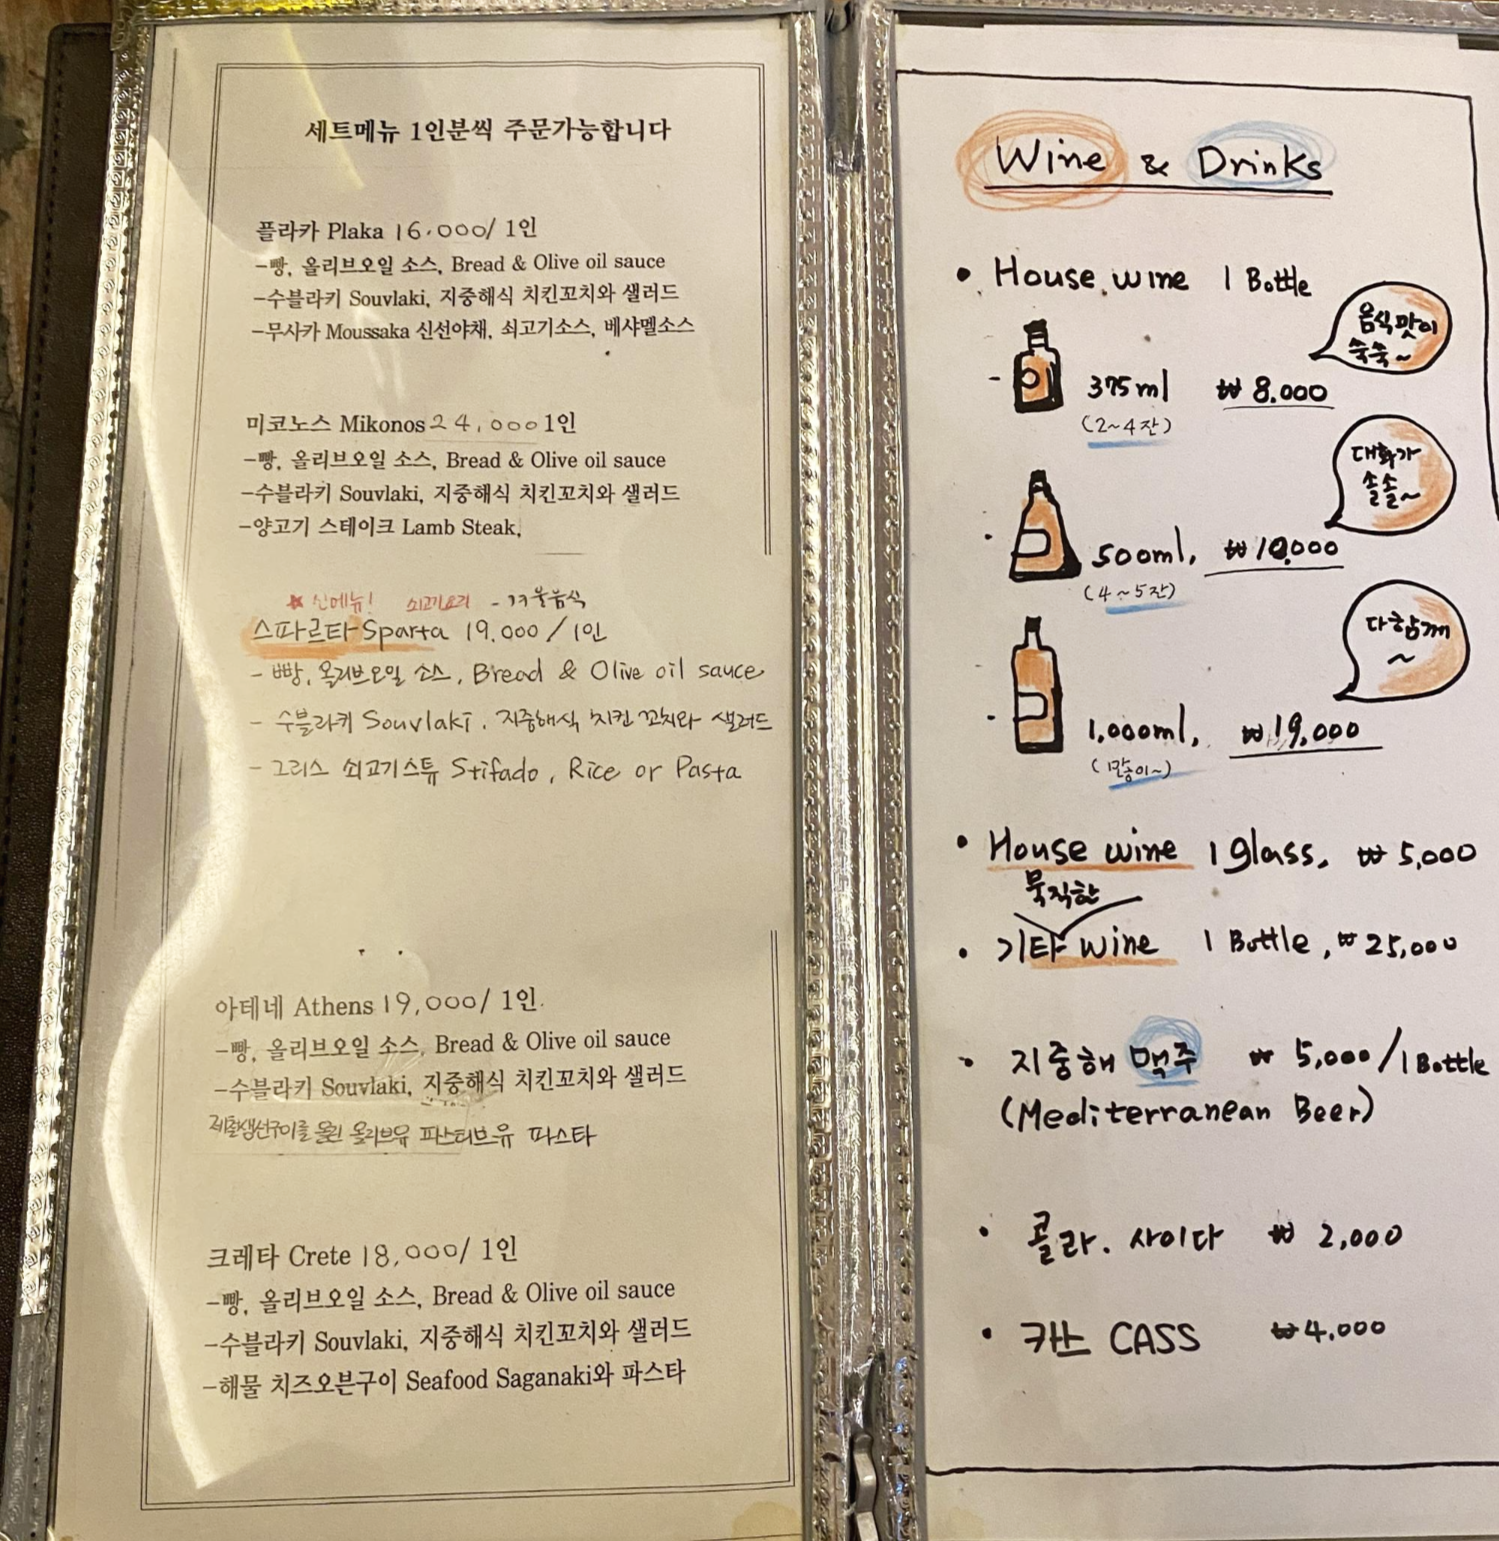 세트메뉴 1인분씩 주문가능합니다
플라카 Plaka 16.000/ 1인
-빵, 올리브오일 소스, Bread & Olive oil sauce
-수블라키 Souvlaki, 지중해식 치킨꼬치와 샐러드
-무사카 Moussaka 신선야채, 쇠고기소스, 베샤멜소스
미코노스 Mikonos 24,000 1인
-빵, 올리브오일 소스, Bread & Olive oil sauce
-수블라키 Souvlaki, 지중해식 치킨꼬치와 샐러드
-양고기 스테이크 Lamb Steak,
★ 신메뉴! 쇠고기요리 - 겨울음식
스파르타 Sparta 19.000 / 1인
- 빵, 올리브오일 소스, Bread & Olive oil sauce
- 수블라키 Souvlaki, 지중해식 치킨 꼬치와 샐러드
- 그리스 쇠고기스튜 Stifado, Rice or Pasta
아테네 Athens 19,000/ 1인.
-빵, 올리브오일 소스, Bread & Olive oil sauce
-수블라키 Souvlaki, 지중해식 치킨꼬치와 샐러드
제철생선구이를 올린 올리브유 파스타
크레타 Crete 18,000/ 1인
-빵, 올리브오일 소스, Bread & Olive oil sauce
-수블라키 Souvlaki, 지중해식 치킨꼬치와 샐러드
-해물 치즈오븐구이 Seafood Saganaki와 파스타
Wine & Drinks
• House wine 1 Bottle
음식맛이
쑥쑥~
- 375ml ₩ 8.000
(2~4잔)
대화가
솔솔~
• 500ml, ₩10,000
(4~5잔)
다함께
~
- 1,000ml, ₩19,000
• House wine 1 glass, ₩ 5,000
묵직한
• 기타 wine 1 Bottle, ₩ 25,000
• 지중해 맥주 ₩ 5,000 / 1 Bottle
(Mediterranean Beer)
• 콜라. 사이다 ₩ 2,000
• 카스 CASS ₩4,000